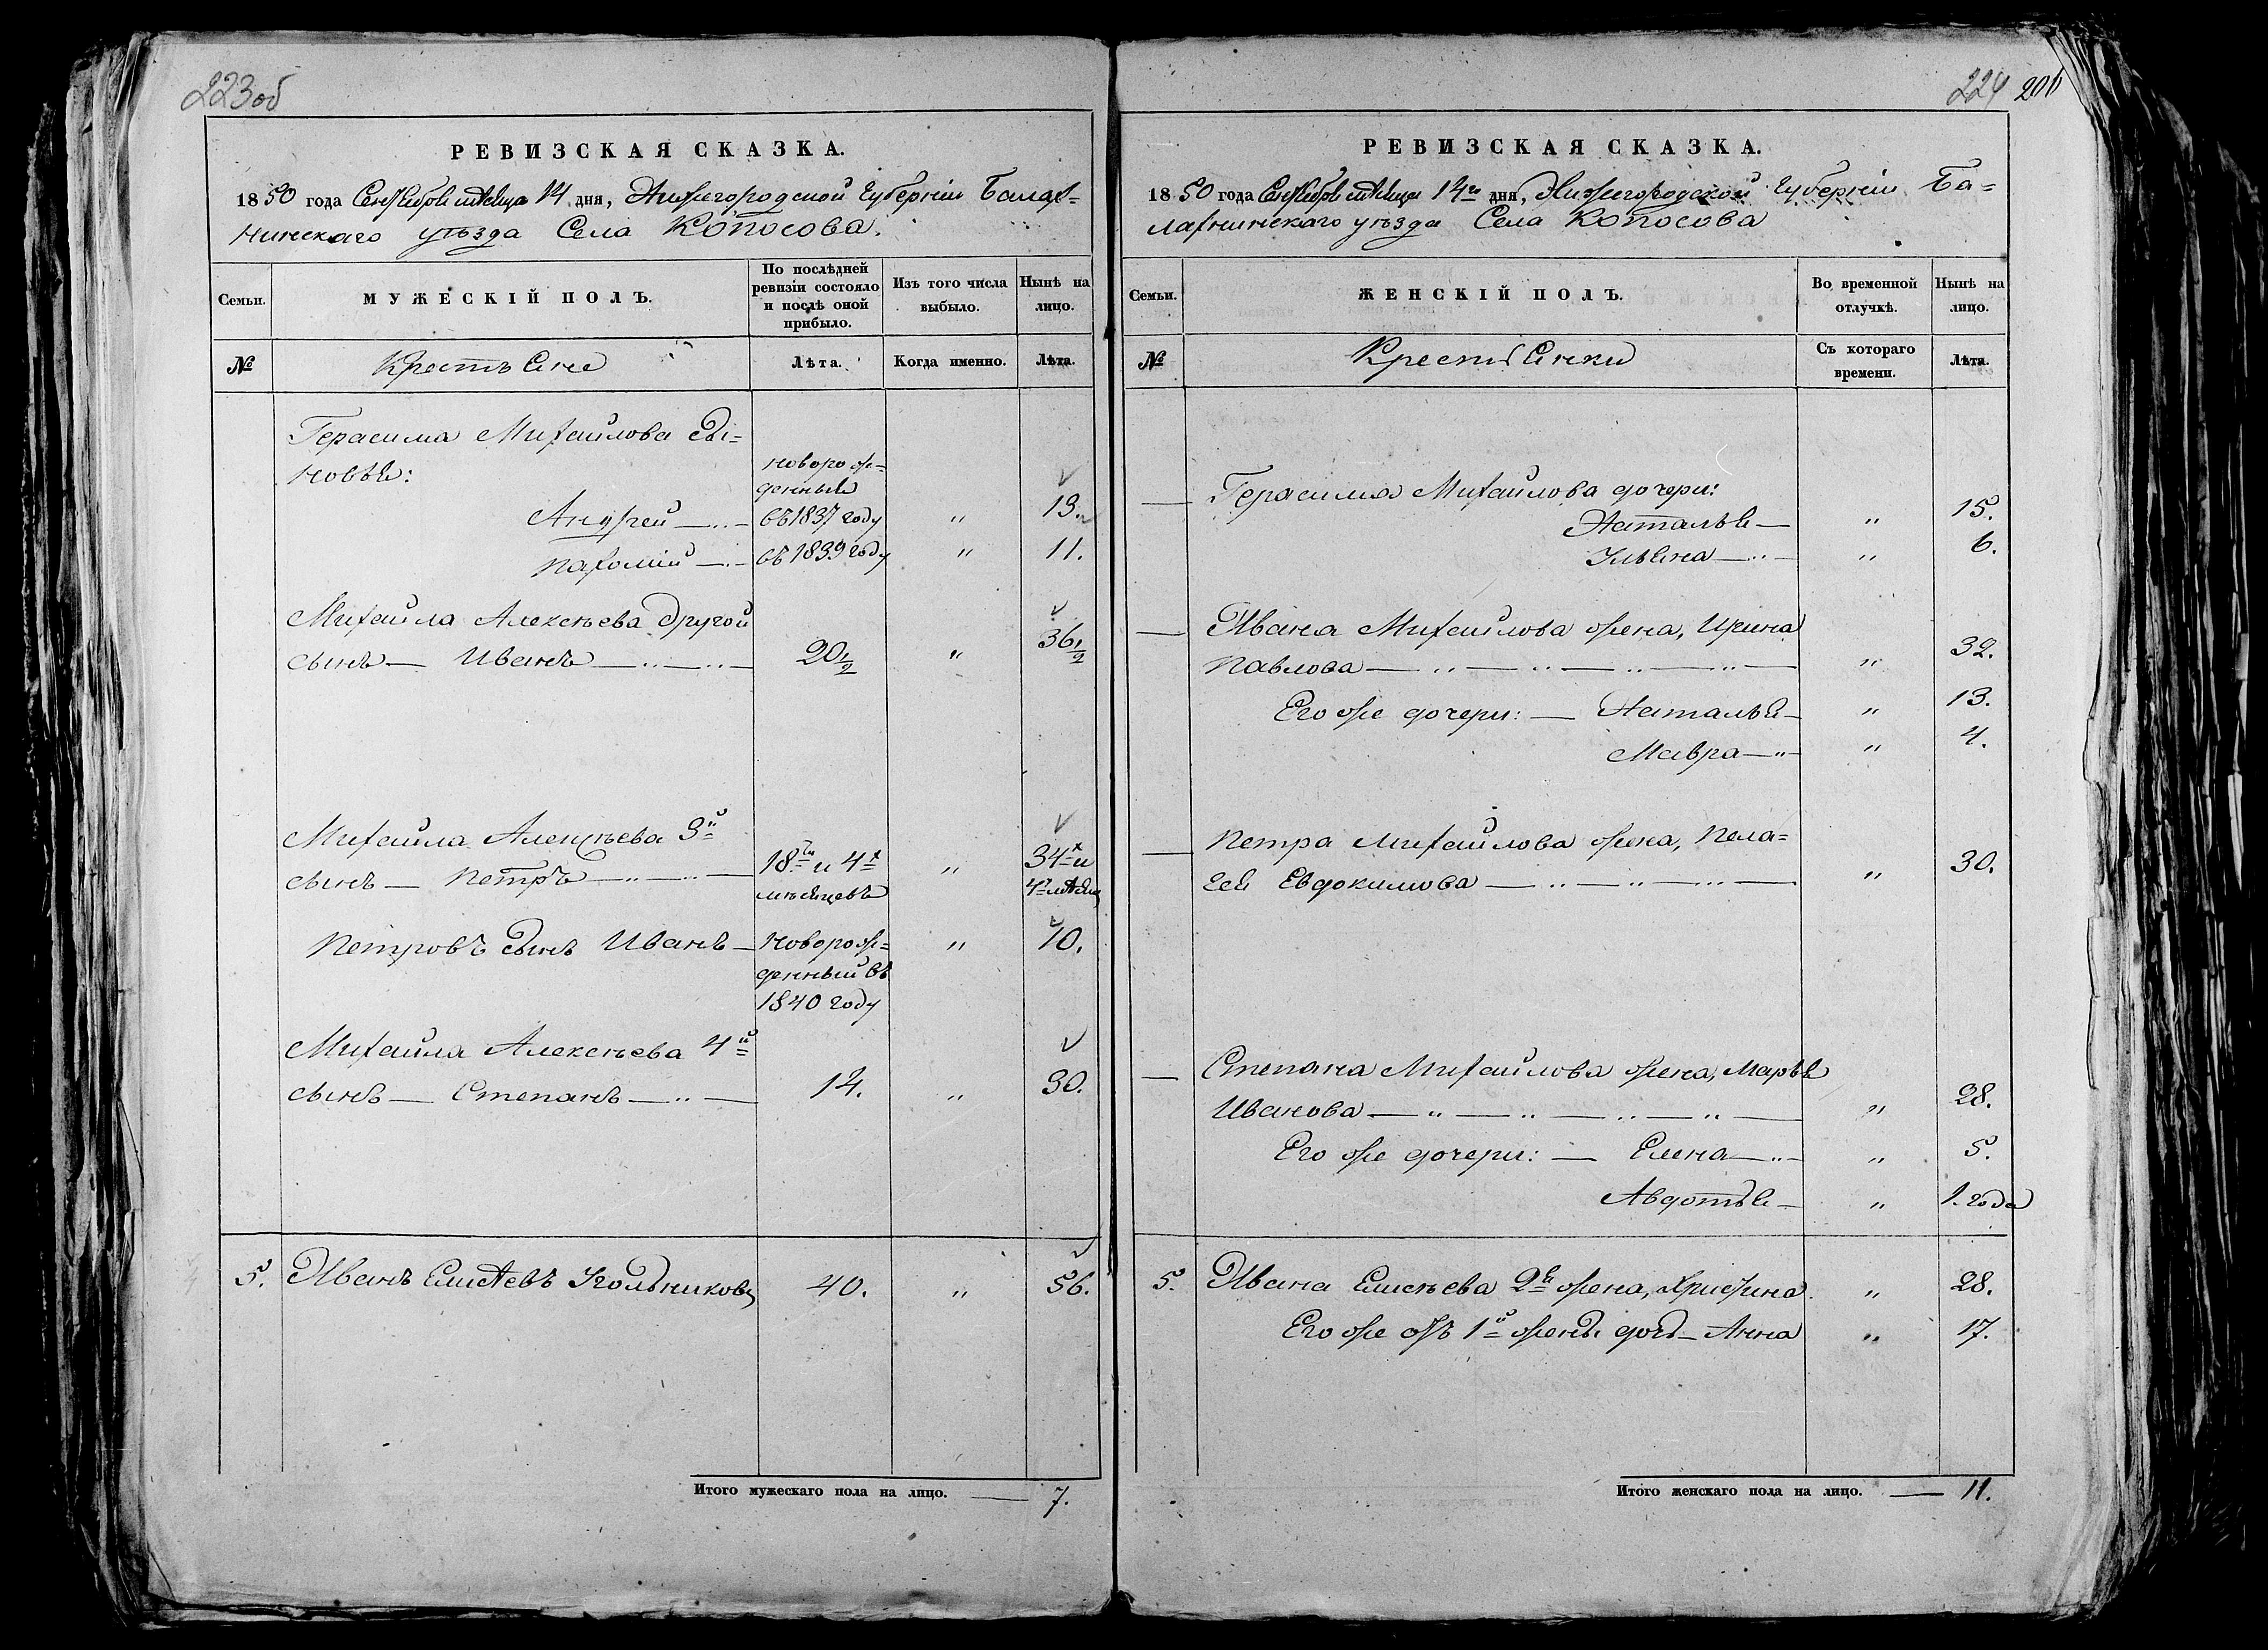 223об
РЕВИЗСКАЯ СКАЗКА.
1850 года Сентября мѣсяца 14 дня, Нижегородской Губерніи Балах-
нинскаго уѣзда Села Копосова.
Семьи.
МУЖЕСКІЙ ПОЛЪ.
По послѣдней ревизіи состояло и послѣ оной прибыло.
Изъ того числа выбыло.
Нынѣ на лицо.
№
Крестьяне
Лѣта.
Когда именно.
Лѣта.
Герасима Михайлова сы-
новья:
новорож-
денный
Андрей — въ 1837 году " 13.
Пахомій — въ 1839 году " 11.
Михайла Алексѣева другой
сынъ — Иванъ — 20 1/2 " 36 1/2
Михайла Алексѣева 3й
сынъ — Петръ — 18ти и 4х " 34х и
мѣсяцевъ 4 мѣсяц
Петровъ сынъ Иванъ — новорож- " 10.
денный въ
1840 году
Михайла Алексѣева 4й
сынъ — Степанъ — 14. " 30.
5. Иванъ Елисѣевъ Угольниковъ 40. " 56.
Итого мужескаго пола на лицо. — 7.
224 200
РЕВИЗСКАЯ СКАЗКА.
1850 года Сентября мѣсяца 14го дня, Нижегородской Губерніи Ба-
лахнинскаго уѣзда Села Копосова
Семьи.
ЖЕНСКІЙ ПОЛЪ.
Во временной отлучкѣ.
Нынѣ на лицо.
№
Крестьянки
Съ котораго времени.
Лѣта.
— Герасима Михайлова дочери:
Наталья — " 15.
Ульяна — " 6.
— Ивана Михайлова жена, Ирина
Павлова — " 32.
Его же дочери: — Наталья — " 13.
Мавра — " 4.
— Петра Михайлова жена, Пела-
гея Евдокимова — " 30.
— Степана Михайлова жена, Марья
Иванова — " 28.
Его же дочери: — Елена — " 5.
Авдотья — " 1. года
5. Ивана Елисѣева 2я жена, Христина " 28.
Его же отъ 1й жены дочь — Анна " 17.
Итого женскаго пола на лицо. — 11.